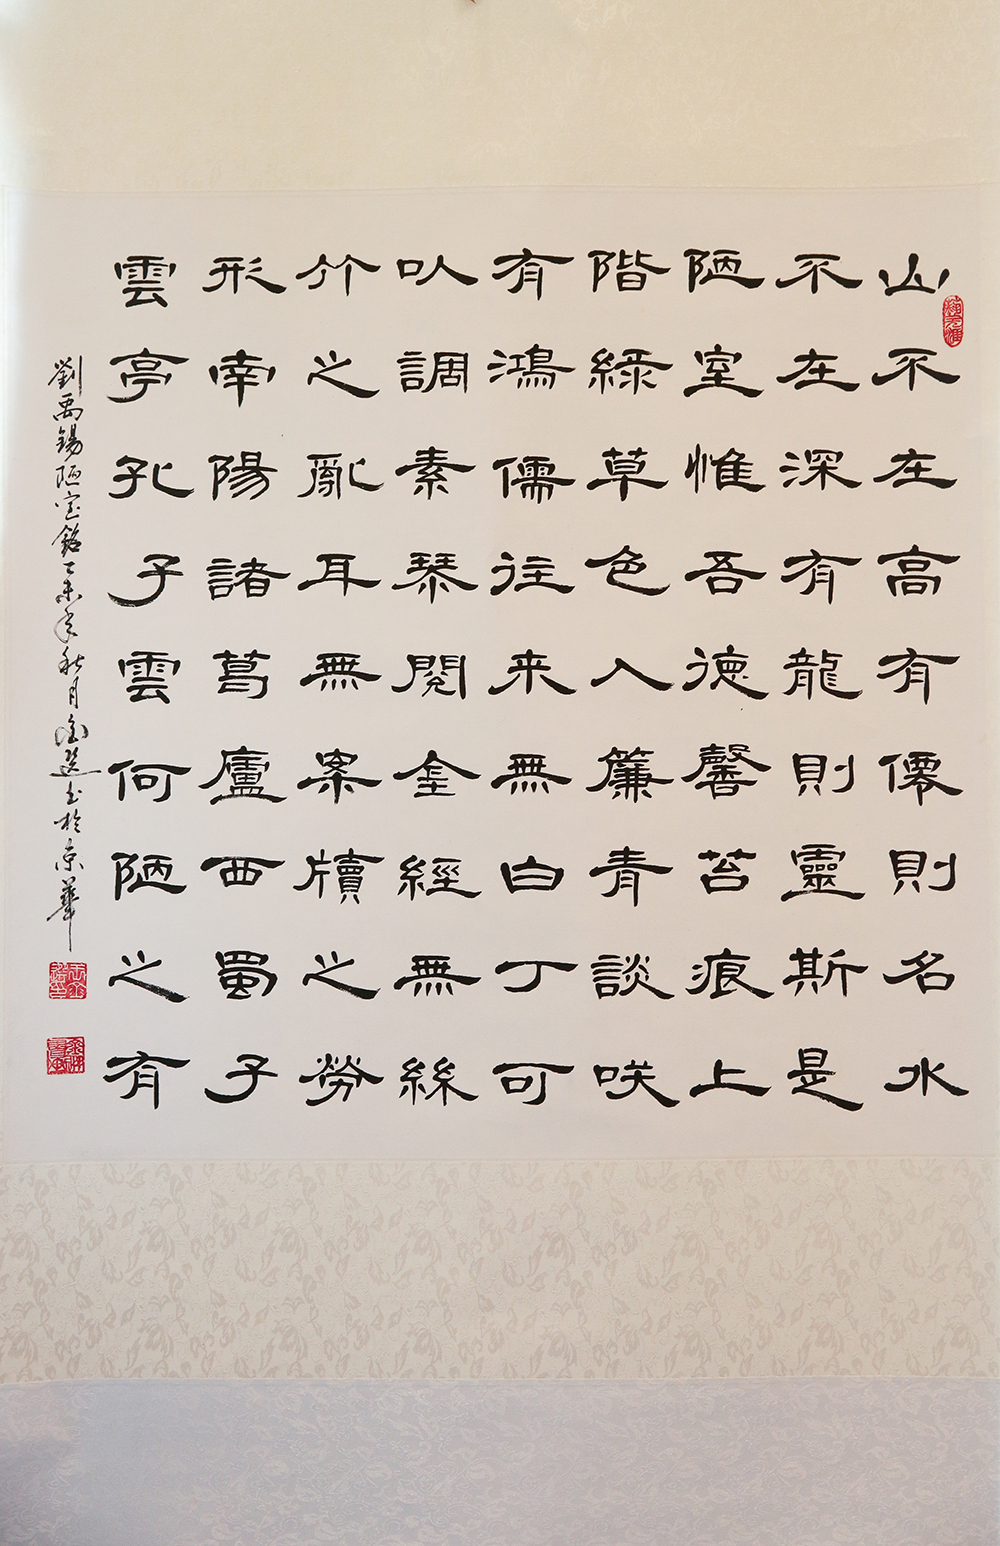 山不在高有僊則名水
不在深有龍則靈斯是
陋室惟吾德馨苔痕上
階綠草色入簾青談咲
有鴻儒往来無白丁可
以調素琴閱金經無絲
竹之亂耳無案牘之勞
形南陽諸葛廬西蜀子
雲亭孔子雲何陋之有
劉禹錫陋室銘乙未年秋月书於京華